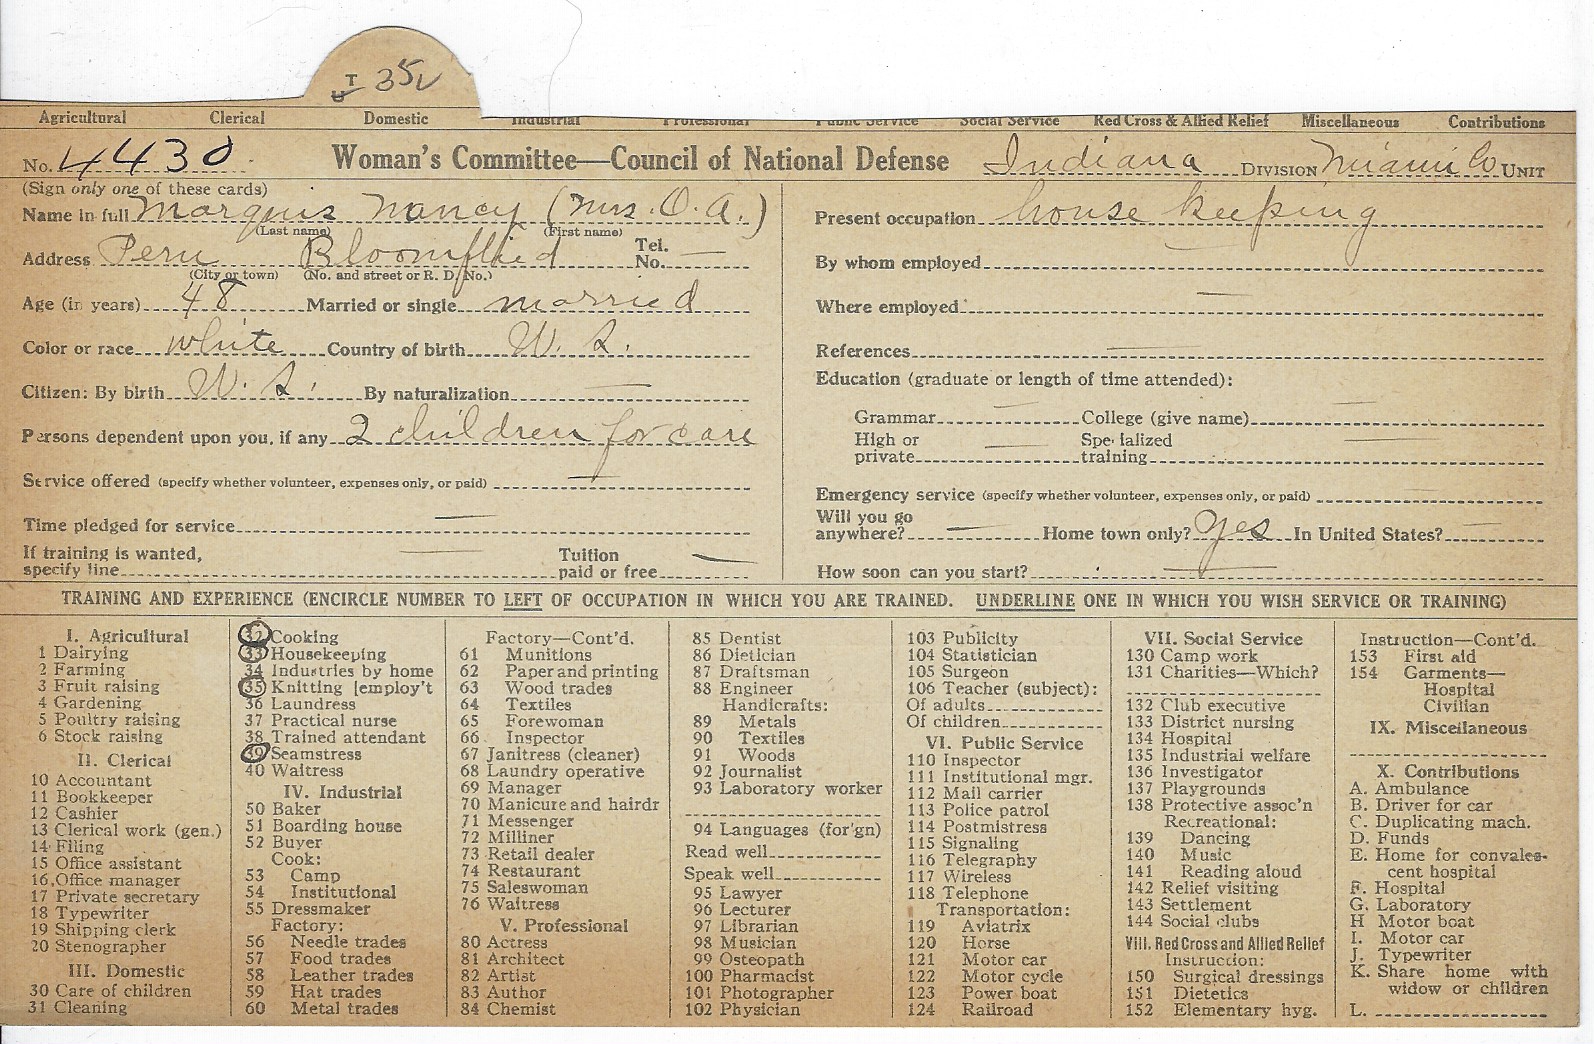 T 35
Agricultural Clerical Domestic Industrial Professional Public Service Social Service Red Cross & Allied Relief Miscellaneous Contributions
No. 4430 Woman's Committee—Council of National Defense Indiana DIVISION Miami Co UNIT
(Sign only one of these cards)
Name in full Marquis Nancy (Mrs. O. A.)
(Last name) (First name)
Address Peru Bloomfield Tel. No. —
(City or town) (No. and street or R. D. No.)
Age (in years) 48 Married or single married
Color or race white Country of birth U. S.
Citizen: By birth U. S. By naturalization —
Persons dependent upon you, if any 2 children for care
Service offered (specify whether volunteer, expenses only, or paid) —
Time pledged for service —
If training is wanted, specify line — Tuition paid or free —
Present occupation house keeping
By whom employed —
Where employed —
References —
Education (graduate or length of time attended):
Grammar — College (give name) —
High or private — Specialized training —
Emergency service (specify whether volunteer, expenses only, or paid) —
Will you go anywhere? — Home town only? Yes In United States? —
How soon can you start? —
TRAINING AND EXPERIENCE (ENCIRCLE NUMBER TO LEFT OF OCCUPATION IN WHICH YOU ARE TRAINED. UNDERLINE ONE IN WHICH YOU WISH SERVICE OR TRAINING)
I. Agricultural
1 Dairying
2 Farming
3 Fruit raising
4 Gardening
5 Poultry raising
6 Stock raising
II. Clerical
10 Accountant
11 Bookkeeper
12 Cashier
13 Clerical work (gen.)
14 Filing
15 Office assistant
16 Office manager
17 Private secretary
18 Typewriter
19 Shipping clerk
20 Stenographer
III. Domestic
30 Care of children
31 Cleaning
32 Cooking
33 Housekeeping
34 Industries by home
35 Knitting [employ't
36 Laundress
37 Practical nurse
38 Trained attendant
39 Seamstress
40 Waitress
IV. Industrial
50 Baker
51 Boarding house
52 Buyer
Cook:
53 Camp
54 Institutional
55 Dressmaker
Factory:
56 Needle trades
57 Food trades
58 Leather trades
59 Hat trades
60 Metal trades
Factory—Cont'd.
61 Munitions
62 Paper and printing
63 Wood trades
64 Textiles
65 Forewoman
66 Inspector
67 Janitress (cleaner)
68 Laundry operative
69 Manager
70 Manicure and hairdr
71 Messenger
72 Milliner
73 Retail dealer
74 Restaurant
75 Saleswoman
76 Waitress
V. Professional
80 Actress
81 Architect
82 Artist
83 Author
84 Chemist
85 Dentist
86 Dietician
87 Draftsman
88 Engineer
Handicrafts:
89 Metals
90 Textiles
91 Woods
92 Journalist
93 Laboratory worker
94 Languages (for'gn)
Read well
Speak well
95 Lawyer
96 Lecturer
97 Librarian
98 Musician
99 Osteopath
100 Pharmacist
101 Photographer
102 Physician
103 Publicity
104 Statistician
105 Surgeon
106 Teacher (subject):
Of adults
Of children
VI. Public Service
110 Inspector
111 Institutional mgr.
112 Mail carrier
113 Police patrol
114 Postmistress
115 Signaling
116 Telegraphy
117 Wireless
118 Telephone
Transportation:
119 Aviatrix
120 Horse
121 Motor car
122 Motor cycle
123 Power boat
124 Railroad
VII. Social Service
130 Camp work
131 Charities—Which?
132 Club executive
133 District nursing
134 Hospital
135 Industrial welfare
136 Investigator
137 Playgrounds
138 Protective assoc'n
Recreational:
139 Dancing
140 Music
141 Reading aloud
142 Relief visiting
143 Settlement
144 Social clubs
VIII. Red Cross and Allied Relief
Instruction:
150 Surgical dressings
151 Dietetics
152 Elementary hyg.
Instruction—Cont'd.
153 First aid
154 Garments—
Hospital
Civilian
IX. Miscellaneous
X. Contributions
A. Ambulance
B. Driver for car
C. Duplicating mach.
D. Funds
E. Home for convales-
cent hospital
F. Hospital
G. Laboratory
H Motor boat
I. Motor car
J. Typewriter
K. Share home with
widow or children
L.